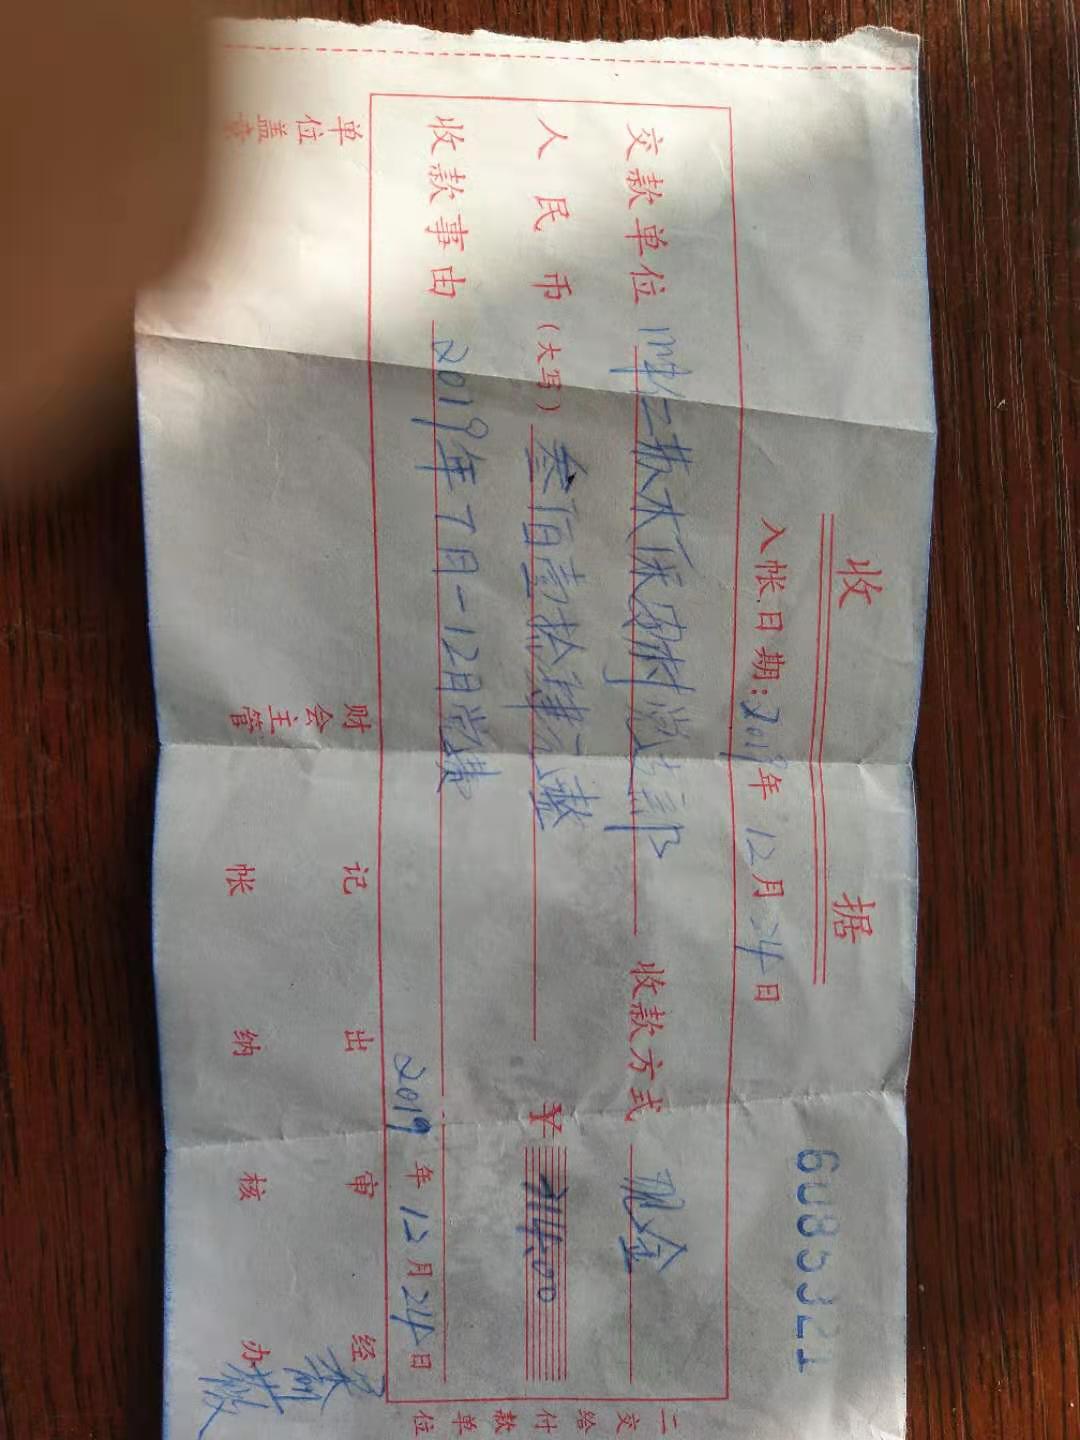 收 据
6085321
入帐日期：2019年 12月 24日
交款单位 村党支部 收款方式 现金
人民币（大写） 叁佰壹拾肆元整 ¥ 314.00
收款事由 2019年7月-12月党费
2019 年 12 月 24 日
单位盖章 财会主管 记帐 出纳 审核 经办
二交给付款单位